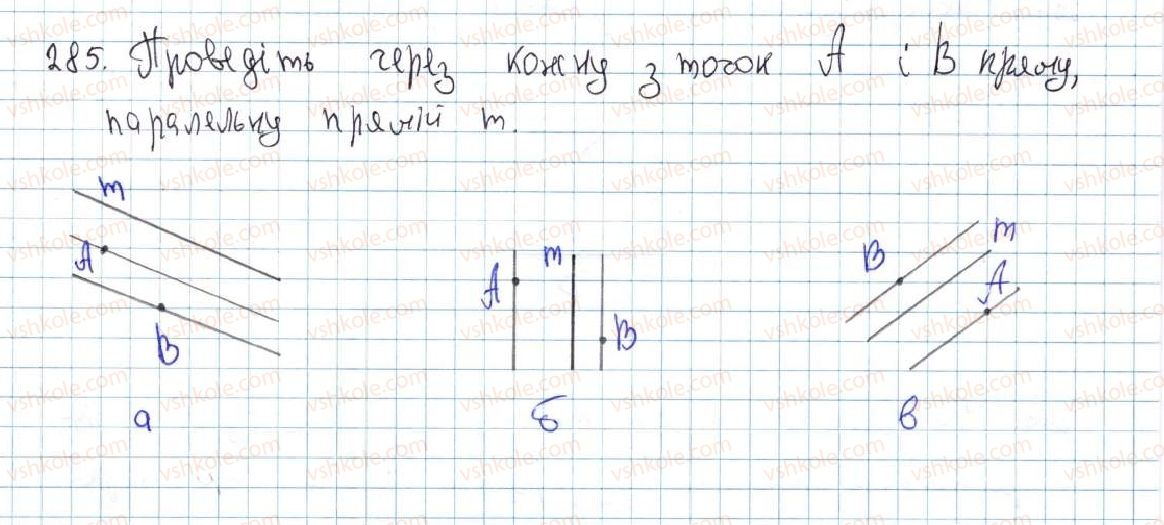 285. Проведіть через кожну з точок А і В пряму,
паралельну прямій m.
m
A
B
а
A
m
B
б
B
m
A
в
vshkole.com